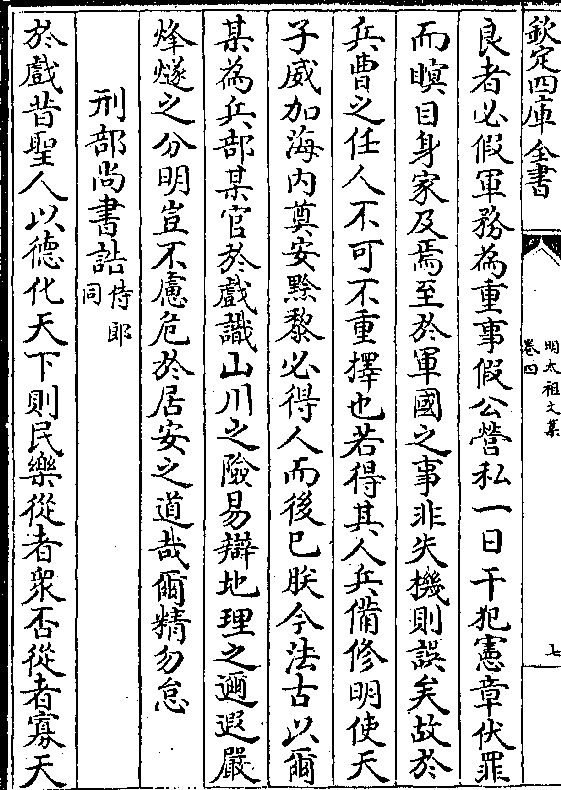 欽定四庫全書
明太祖文集
卷四
七
良者必假軍務為重事假公營私一日干犯憲章伏罪
而瞑目身家及焉至於軍國之事非失機則誤矣故於
兵曹之任人不可不重擇也若得其人兵備修明使天
子威加海内奠安黔黎必得人而後已朕今法古以爾
某為兵部某官於戲識山川之險易辯地理之邇遐嚴
烽燧之分明豈不慮危於居安之道哉爾精勿怠
刑部尚書誥侍郎同
於戲昔聖人以德化天下則民樂從者衆否從者寡天